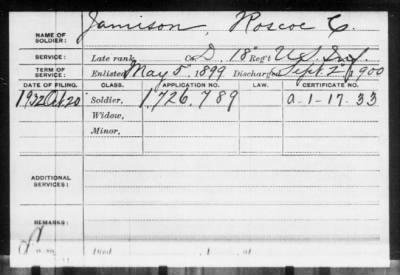 NAME OF SOLDIER: Jamison, Roscoe C.
SERVICE: Late rank, Co. D, 18" Reg't U.S. Inf.
TERM OF SERVICE: Enlisted May 5, 1899 Discharged Sept. 2" 1900
DATE OF FILING. CLASS. APPLICATION NO. LAW. CERTIFICATE NO.
1932 Oct 20 Soldier, 1,726,789 a-1-17-33
Widow,
Minor,
ADDITIONAL SERVICES:
REMARKS:
Died